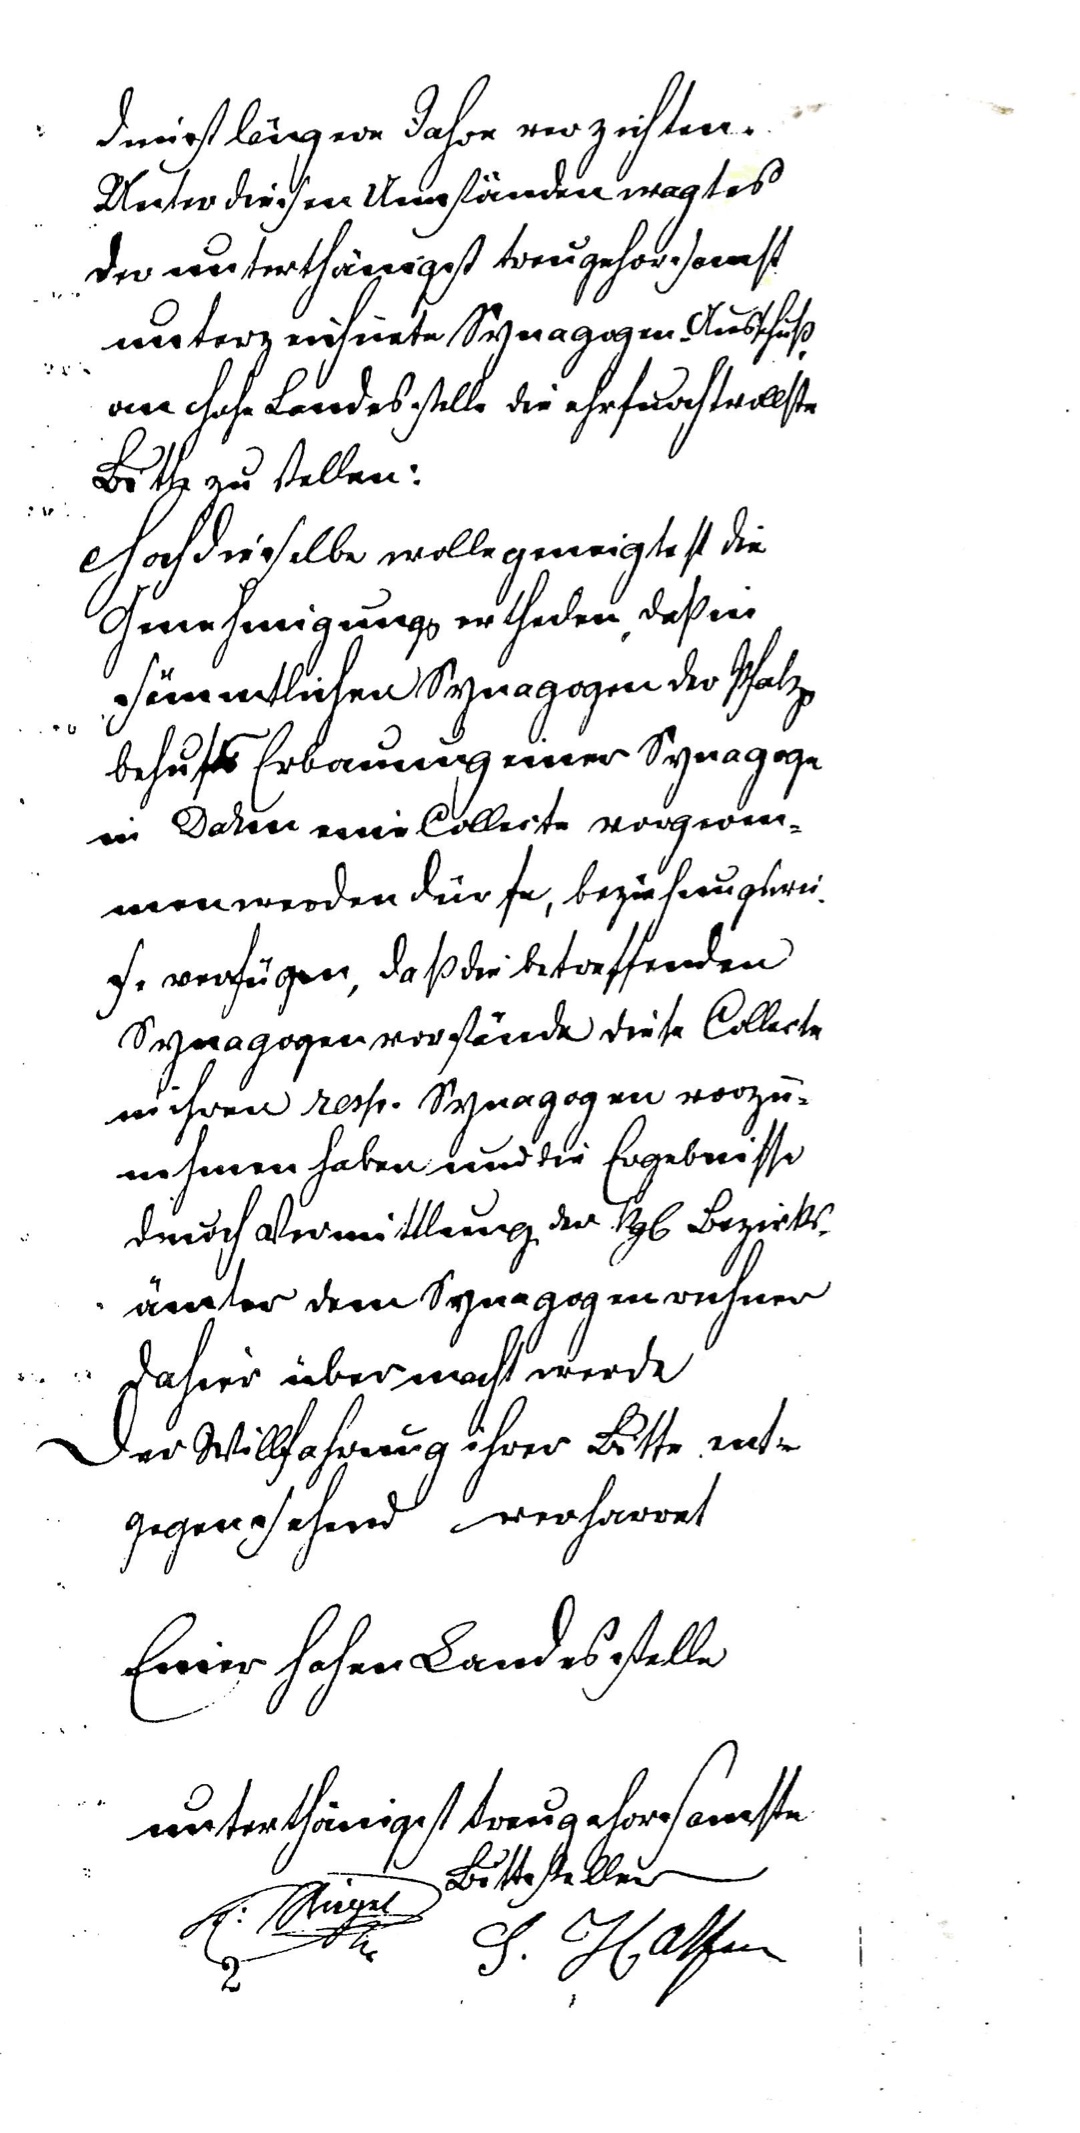 durch längere Jahre verzichten.
Unter diesen Umständen wagt es
der unterthänigst treugehorsamst
unterzeichnete Synagogen-Ausschuß
an hohe Landesstelle die ehrfurchtvollste
Bitte zu stellen:
Hochdieselbe wolle geneigtest die
Genehmigung ertheilen, daß in
sämmtlichen Synagogen der Pfalz
behufs Erbauung einer Synagoge
in Dahn eine Collecte vorgenom-
men werden dürfe, beziehungswei-
se verfügen, daß die betreffenden
Synagogenvorstände diese Collecte
in ihren resp. Synagogen vorzu-
nehmen haben und die Ergebnisse
durch Vermittlung der Kgl Bezirks-
ämter dem Synagogenrechner
dahier übermacht werde
Der Willfahrung ihrer Bitte ent-
gegensehend verharret
Einer hohen Landesstelle
unterthänigst treugehorsamste
Bittsteller
S. Halfen
2